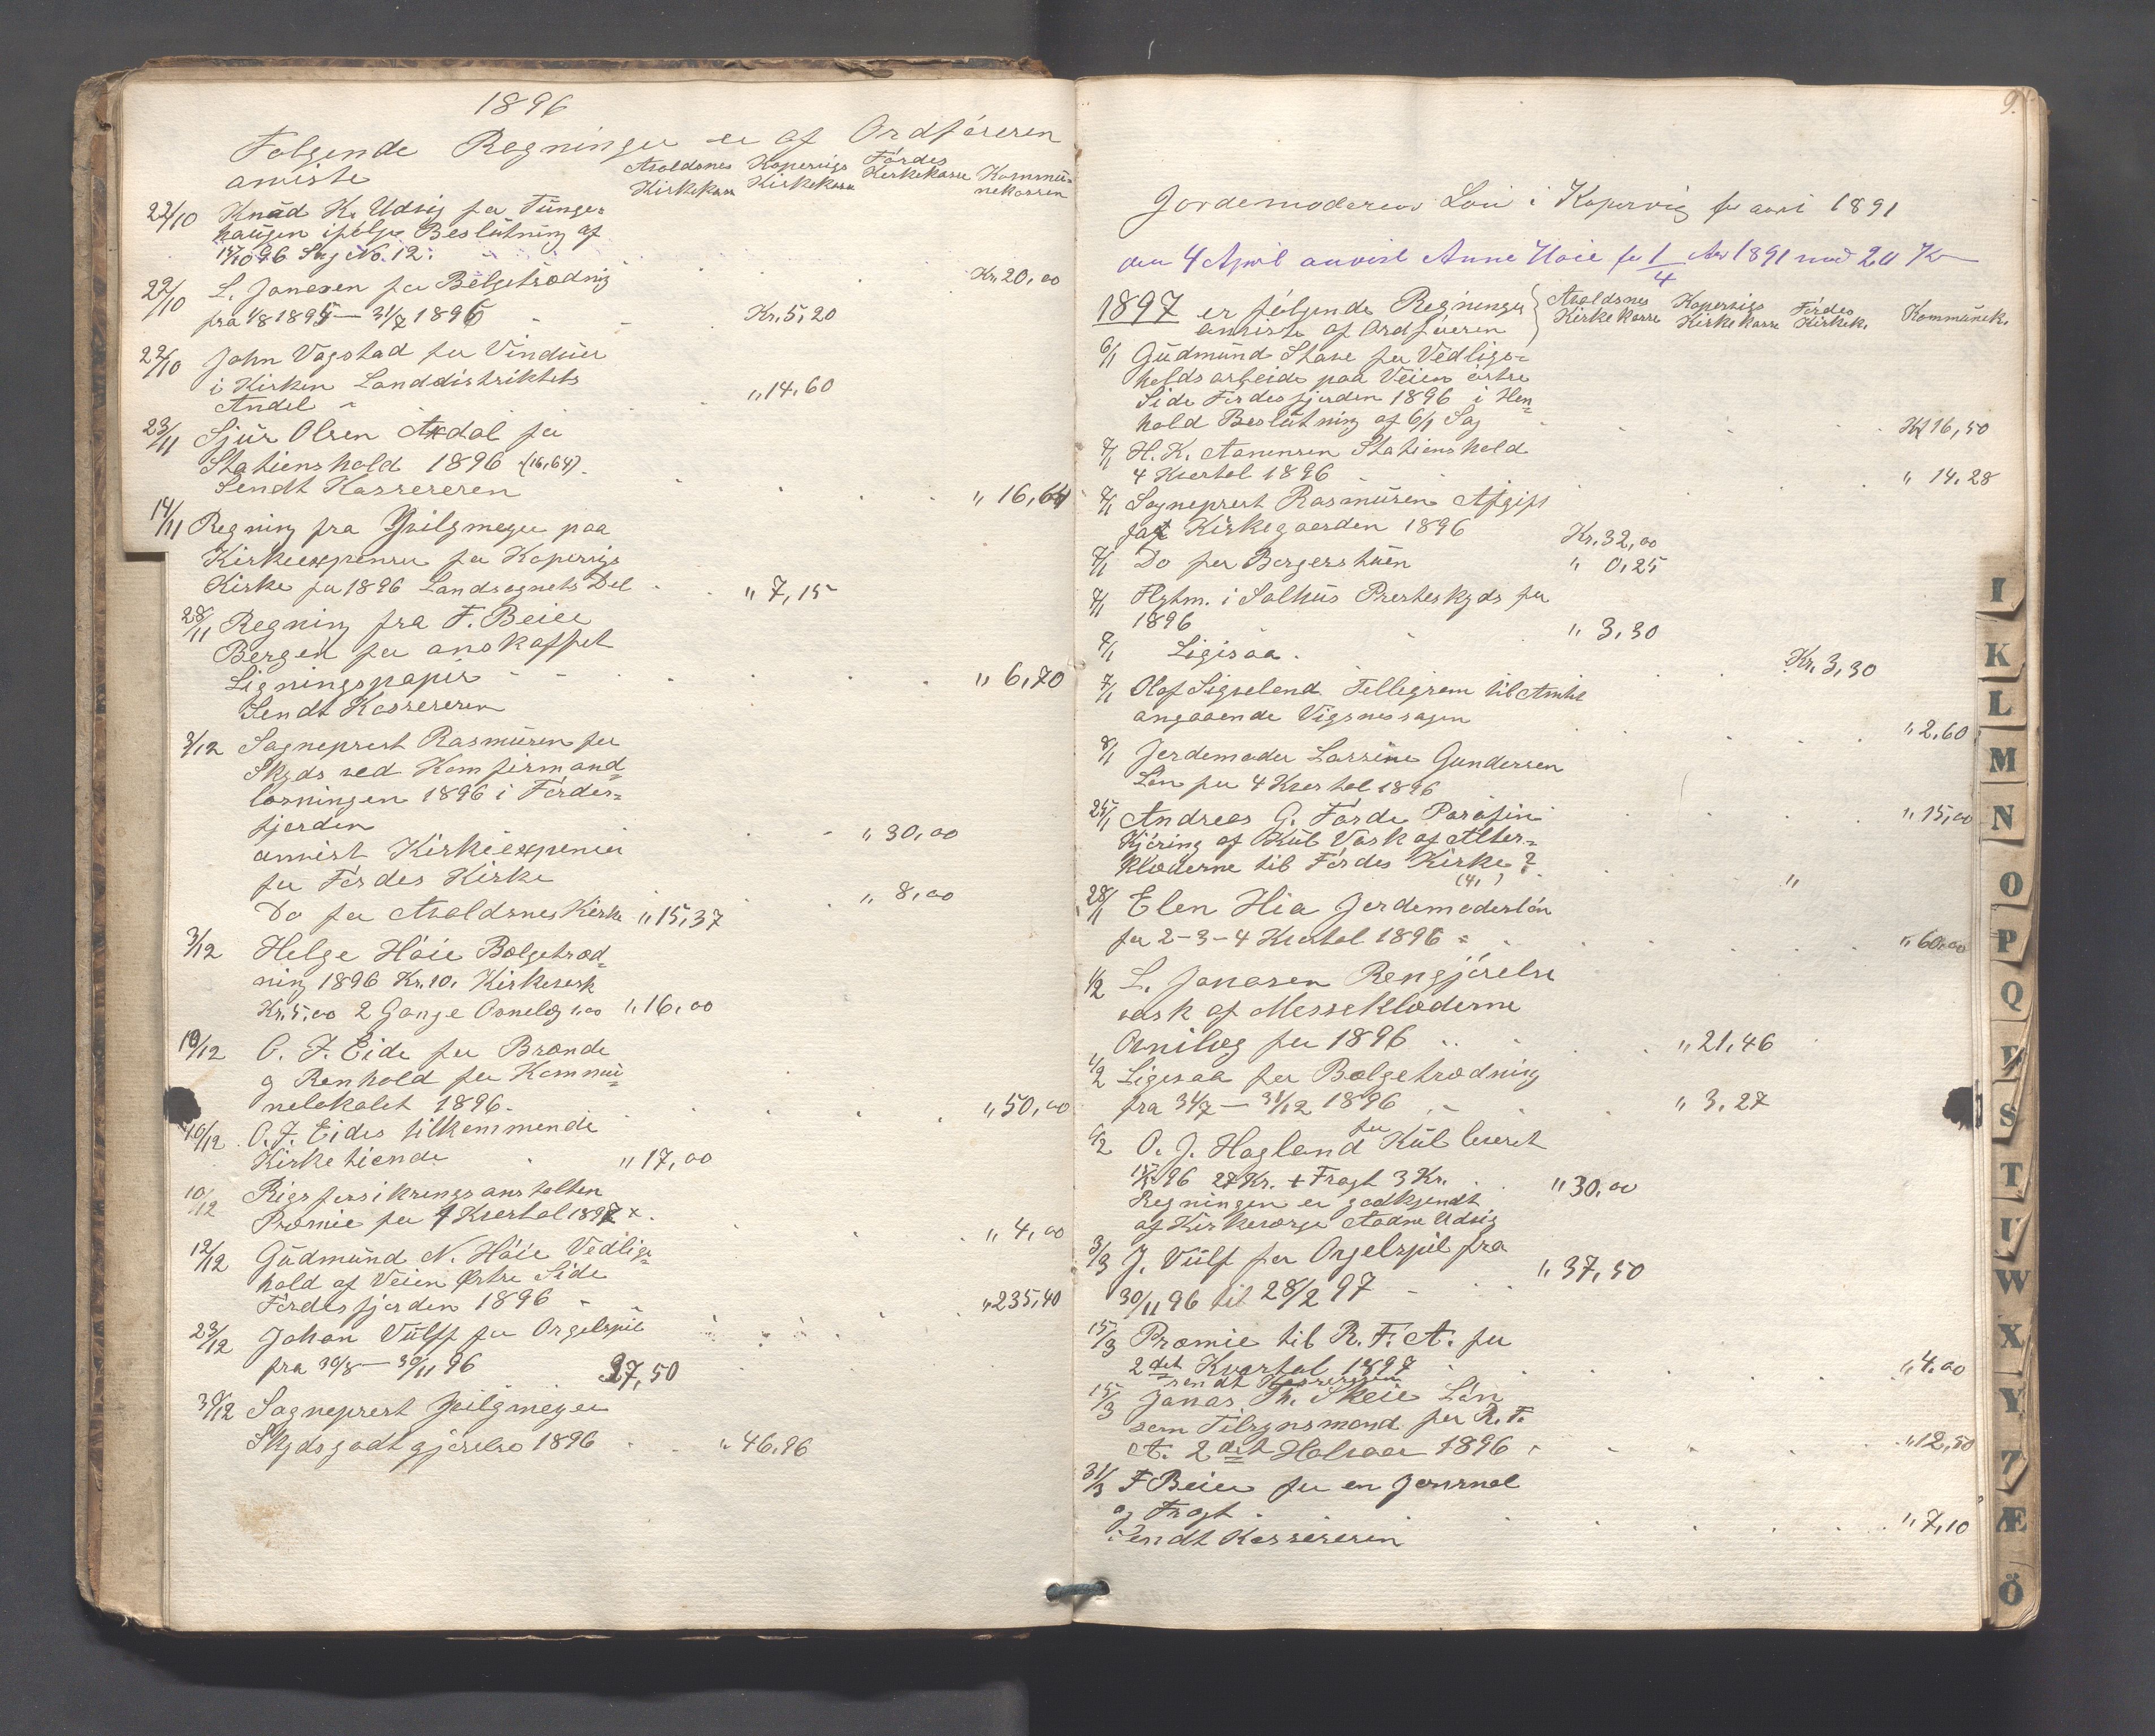 1896
Følgende Regninger er af Ordføreren
anviste
Avaldsnes Kirkekasse Kopervigs Kirkekasse Førdes Kirkekasse Kommunekassen
22/10 Knud K. Udvig for Tünge-
haugen ifølge Beslutning af
15/10 96 Sag No. 12. Kr. 20,00
22/10 L. Janasen for Belgetrædnig
fra 1/8 1895 — 31/7 1896 Kr. 5,20
22/10 John Vagstad for Vinduer
i Kirken Landdistriktets
Andel " 14,60
23/11 Sjur Olsen Aadal for
Stationshold 1896 (16,64)
Sendt Kassereren " 16,64
14/11 Regning fra Hvilgmeyer paa
Kirkeexpenser for Kopervigs
Kirke for 1896 Landsognets Del " 7,15
28/11 Regning fra F. Beier
Bergen for anskaffet
Ligningspapir " 6,70
Sendt Kassereren
3/12 Sogneprest Rasmusen for
Skyds ved Komfirmand-
læsningen 1896 i Førdes-
fjorden " 30,00
anvist Kirkeexpenser
for Førdes Kirke " 8,00
Do for Avaldsnes Kirke " 15,37
3/12 Helge Høie Bælgetræd-
ning 1896 Kr. 10. Kirkevask
Kr. 5,00 2 Gange Ovnelæg 1,00 " 16,00
10/12 O. J. Eide for Brænde
g Renhold for Kommu-
nelokalet 1896. " 50,00
10/12 O. J. Eides tilkommende
Kirketiende " 17,00
10/12 Rigsforsikringsanstalten
Præmie for 1 Kvertal 1897 " 4,00
12/12 Gudmund N. Høie Vedlige-
hold af Veien Østre Side
Førdesfjorden 1896 " 235,40
23/12 Johan Vülff for Orgelspil
fra 30/8 — 30/11 96 37,50
30/12 Sogneprest Hvilgmeyer
Skydsgodtgjørelse 1896 " 46,96
9.
Jordemoderens Løn i Kopervig for aaret 1891
den 4 April anvist Anne Høie for 1/4 Aar 1891 med 20 Kr
1897 er følgende Regninger
anviste af Ordføreren
Avaldsnes Kirkekasse Kopervigs Kirkekasse Førdes Kirkek. Kommunek.
6/1 Gudmund Stave for Vedlige-
holdsarbeide paa Veien østre
Side Førdesfjorden 1896 i Hen-
hold Beslutning af 6/1 Sag Kr 16,50
7/1 H. K. Aanensen Stationshold
4 Kvertal 1896 " 14,28
7/1 Sogneprest Rasmusen Afgift
fast Kirkegaarden 1896 Kr. 32,00
7/1 Do for Borgerstuen " 0,25
7/1 Flytm. i Salhus Presteskyds for
1896 " 3,30
7/1 Ligisaa. Kr. 3,30
7/1 Olaf Sigveland Telligram til Amtet
angaaende Vigsnessagen " 2,60
8/1 Jordemoder Lassine Gundersen
Løn for 4 Kvertal 1896 " 15,00
25/1 Andreas G. Førde Parafin
Kjøring af Kül Vask af Alter-
klæderne til Førdes Kirke ? "
(4, )
28/1 Elen Hia Jordemoderløn
for 2-3-4 Kvertal 1896 " 60,00
1/2 L. Janasen Rengjørelse
vask af Messeklæderne
Ovnilæg for 1896 " 21,46
1/2 Ligesaa for Bælgetrædning
fra 31/7 — 31/12 1896 " 3,27
6/2 O. J. Hagland for Kül leveret
96 27 Kr. + Fragt 3 Kr. " 30,00
Regningen er godkjendt
af Kirkeværge Aadne Udvig
3/3 J. Vülf for Orgelspil fra
30/11 96 til 28/2 97 " 37,50
15/3 Præmie til R. F. A. for
2det Kvartal 1897 " 4,00
sendt Kassereren
15/3 Janas Th. Skeie Løn
som Tilsynsmand for R. F.
A. 2det Halvaar 1896 " 12,50
31/3 F Beier for en Journal
og Fragt " 7,10
Sendt Kassereren
I
K
L
M
N
O
P
Q
R
S
T
U
W
X
Y
Z
Æ
Ö